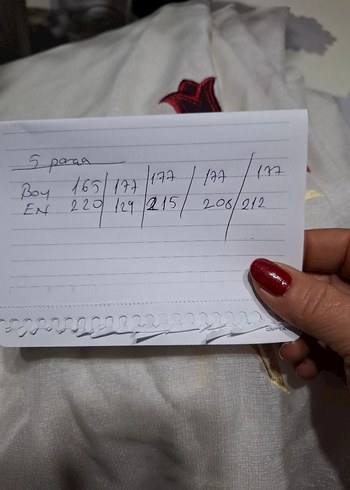 5 parça
Boy 165 / 177 / 177 / 177 / 177
EN 220 / 129 / 215 / 206 / 212